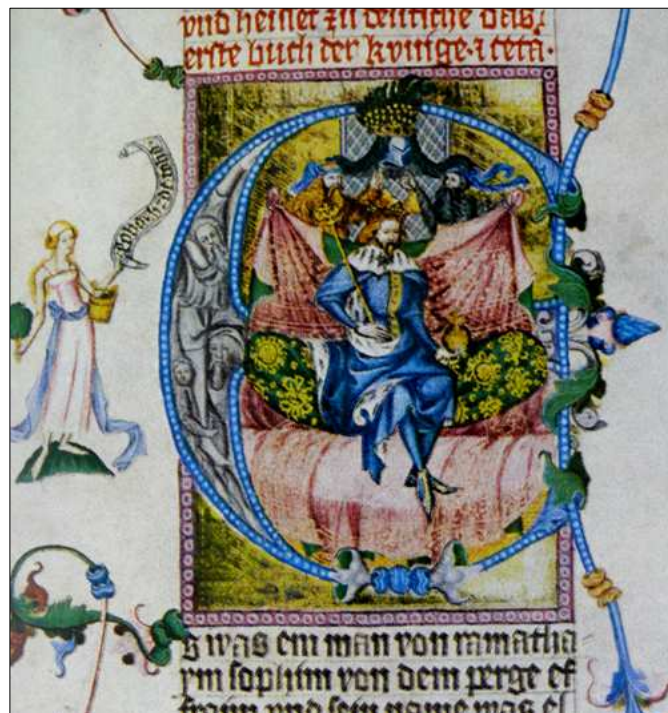 vnd heiſſet zu deutſche das
erſte buch der kvnige
Es was ein man von ramatha
ym ſophim von dem perge ef
fraim vnd ſein name was el